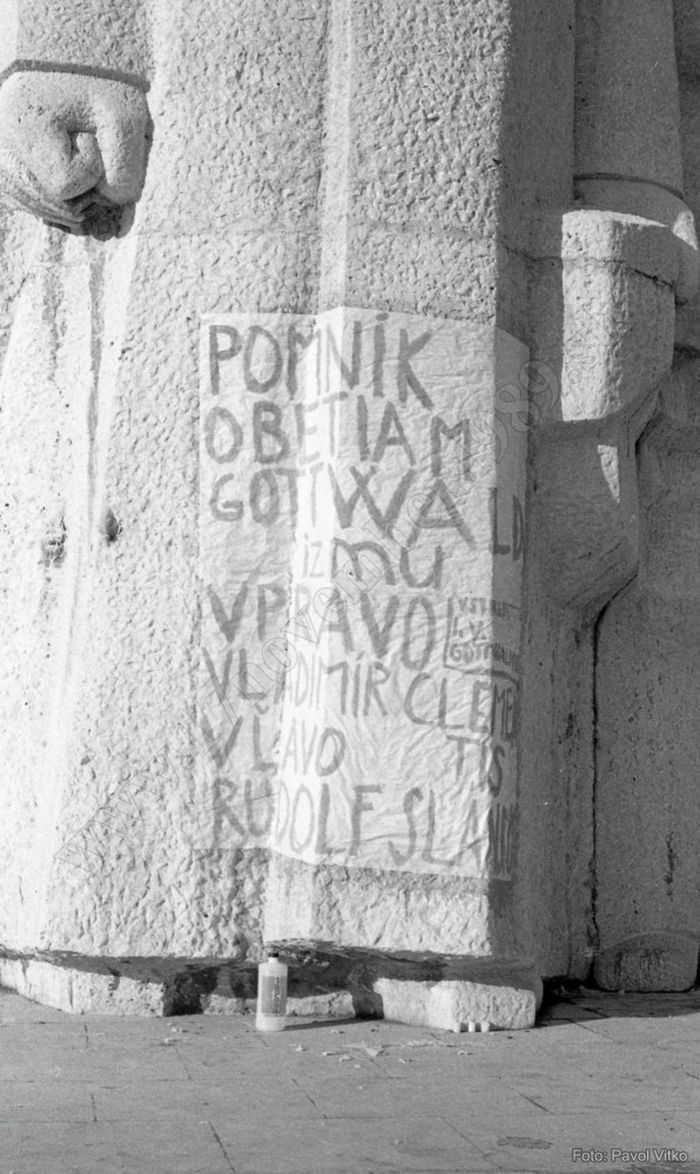 POMNÍK
OBETIAM
GOTTWALD
IZ
MU
VPRAVO
VLADIMÍR CLEMEN
TIS
VĽAVO
RUDOLF SLÁNSK
Foto: Pavol Vitko